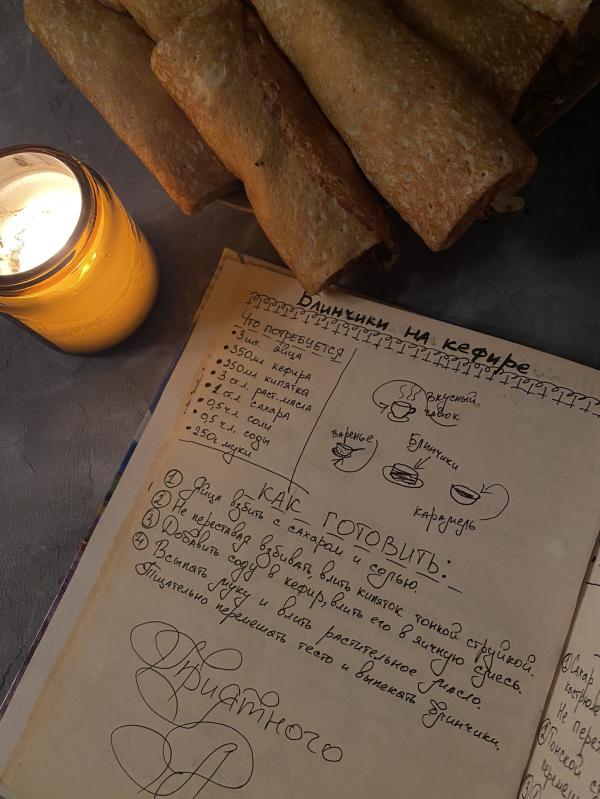 Блинчики на кефире
Что потребуется
• 3 шт. яйца
• 350мл кефира
• 250мл кипятка
• 3 ст.л. раст.масла
• 2 ст.л. сахара
• 0,5 ч.л. соли
• 0,5 ч.л. соды
• 250г муки
вкусный
чаёк
варенье
Блинчики
карамель
Как готовить:
① Яйца взбить с сахаром и солью.
② Не переставая взбивать, влить кипяток тонкой струйкой.
③ Добавить соду в кефир, влить его в яичную смесь.
④ Всыпать муку и влить растительное масло.
Тщательно перемешать тесто и выпекать блинчики.
Приятного
А
① Сахар
Не пере
② Тонкой